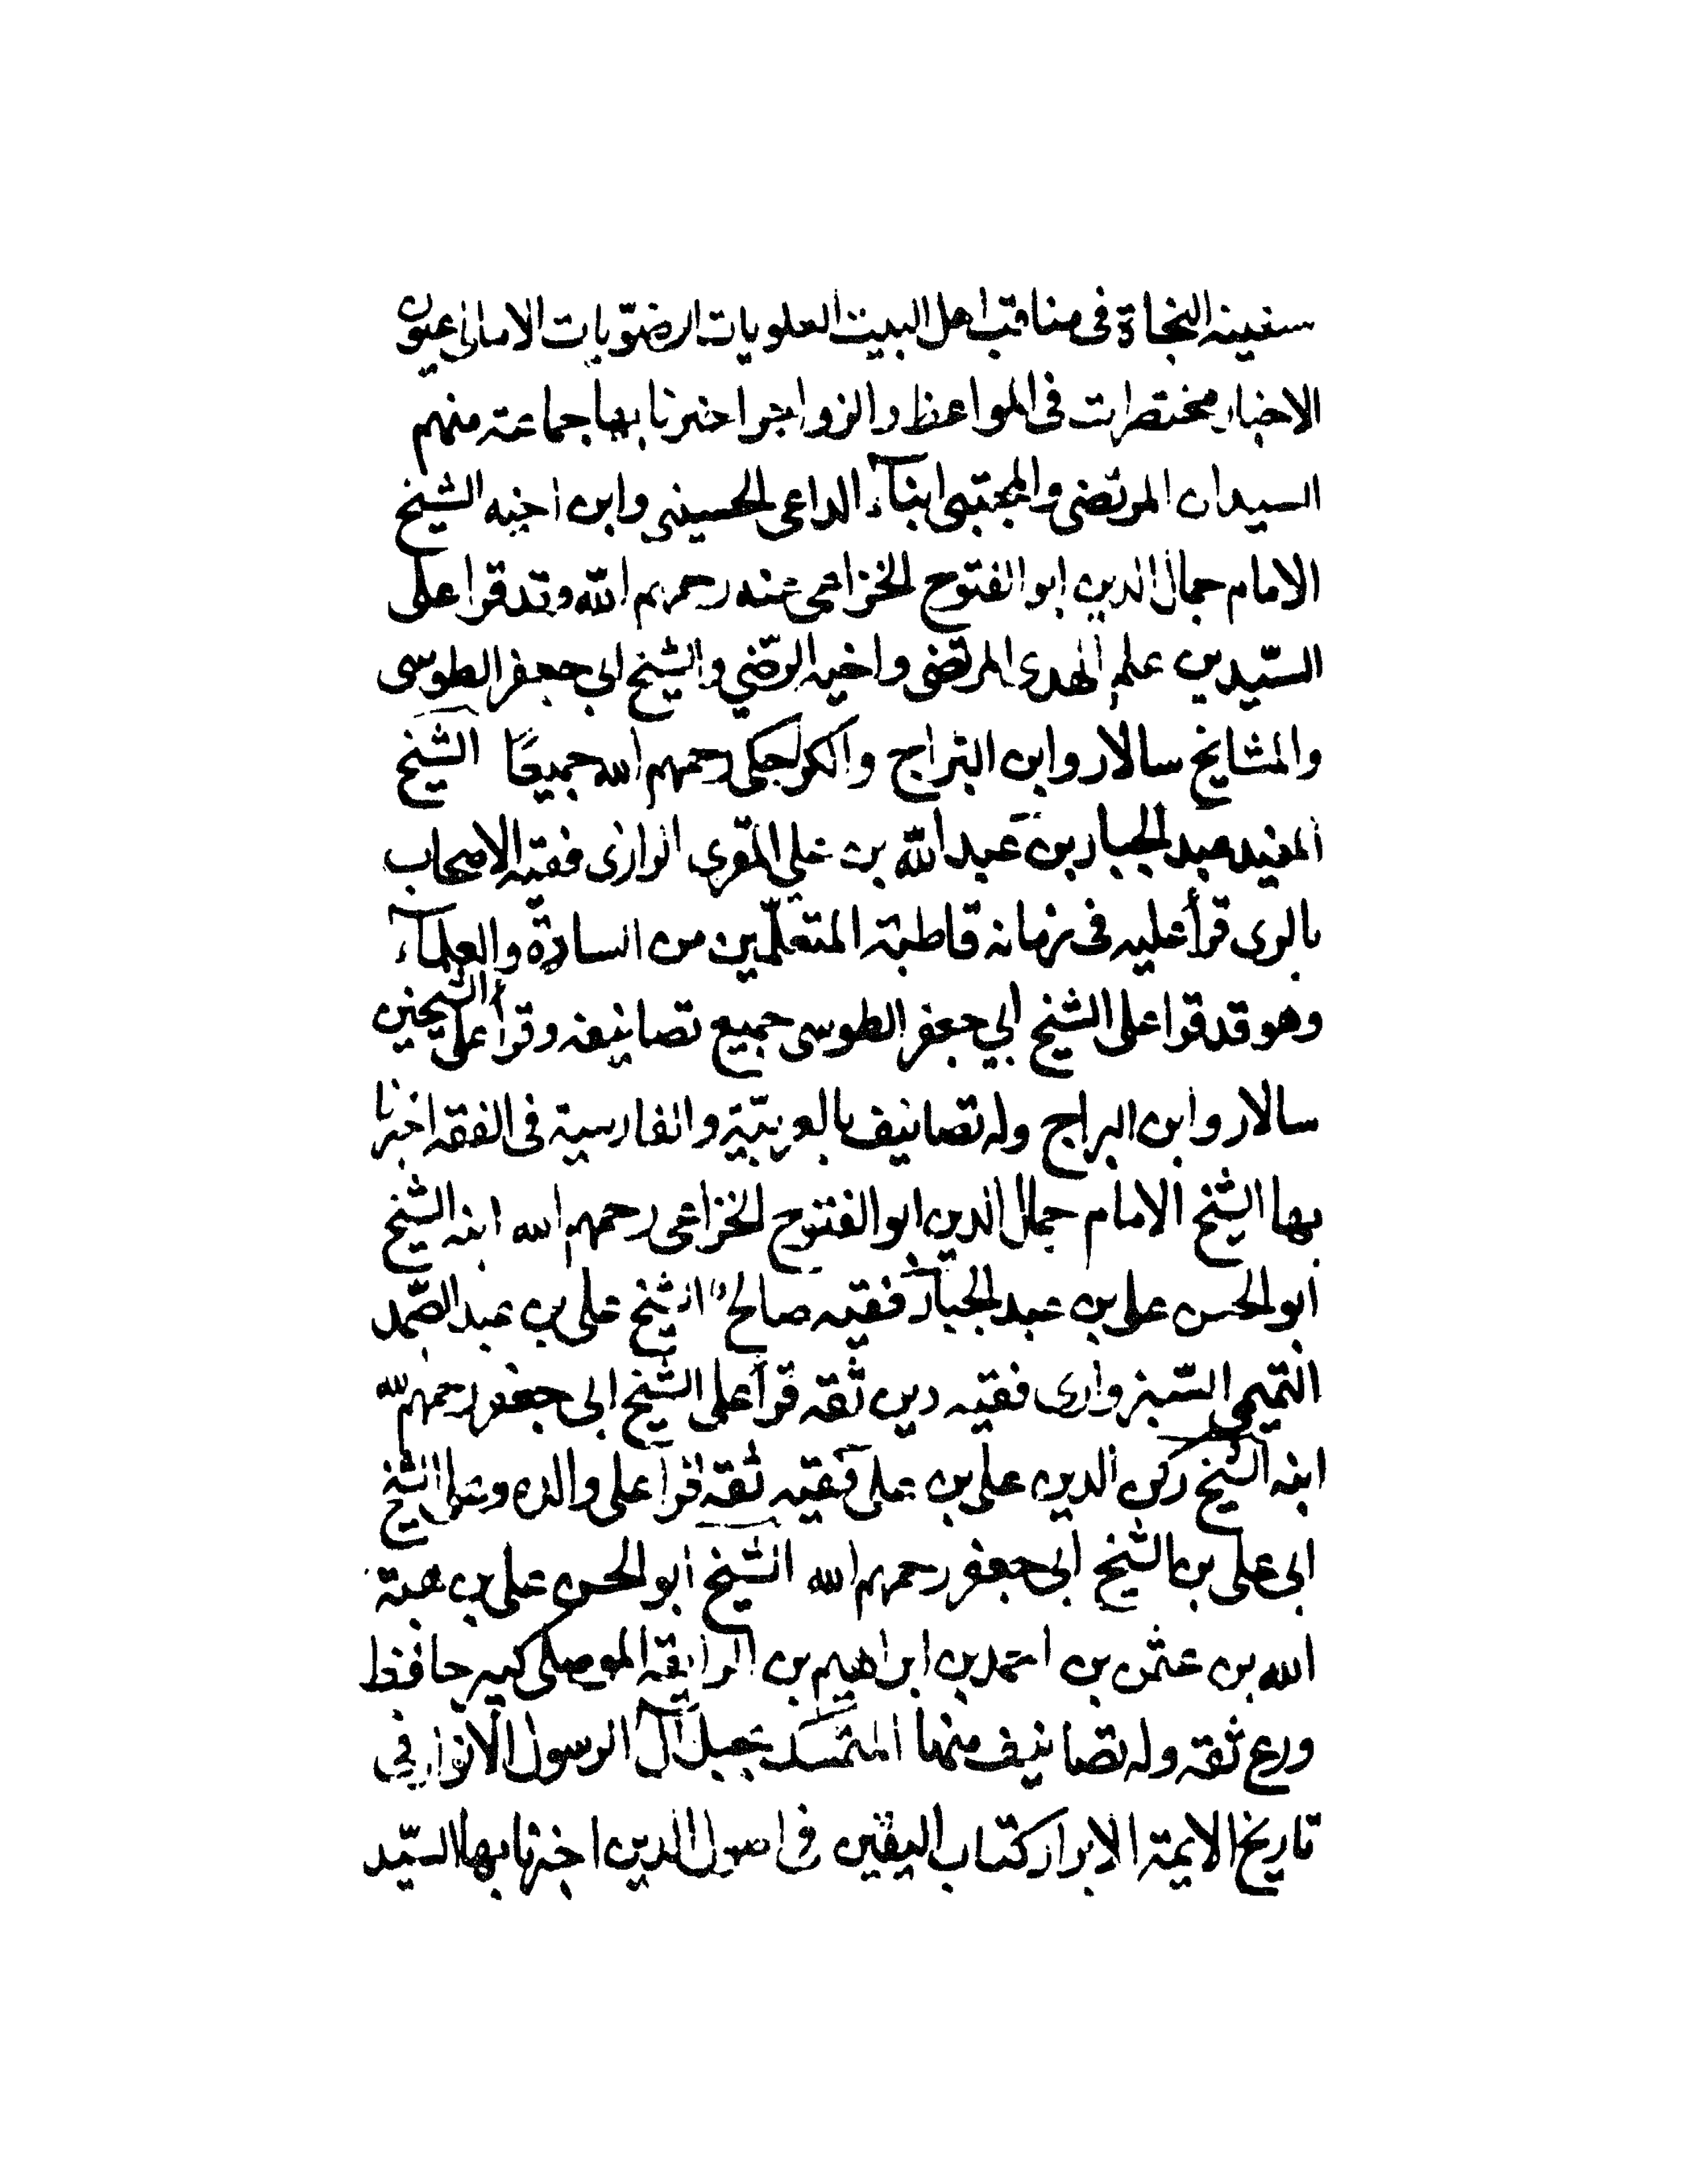 سفينة النجاة فى مناقب اهل البيت العلويات الرضويات الامالى عيون
الاخبار مختصرات فى المواعظ والزواجر اخبرنا بها جماعة منهم
السيدان المرتضى والمجتبى ابنآء الداعى الحسينى وابن اخيه الشيخ
الامام جمال الدين ابو الفتوح الخزاعى عنه رحمهم الله وقد قرا على
السّيدين علم الهدى المرتضى واخيه الرّضي والشيخ ابى جعفر الطوسى
والمشايخ سالار وابن البراج والكراجكى رحمهم الله جميعًا الشيخ
المفيد عبد الجبار بن عبد الله بن على المقرى الرازى فقيه الاصحاب
بالرى قرأ عليه فى زمانه قاطبة المتعلّمين من السادة والعلمآء
وهو قد قرا على الشيخ ابي جعفر الطوسى جميع تصانيفه وقرأ على الشيخين
سالار وابن البراج وله تصانيف بالعربيّة والفارسية فى الفقه اخبرنا
بها الشيخ الامام جمال الدين ابو الفتوح الخزاعى رحمهم الله ابنه الشيخ
ابو الحسن على بن عبد الجبار فقيه صالح الشيخ على بن عبد الصّمد
التميمى السّبزوارى فقيه دين ثقه قرأ على الشيخ ابى جعفر رحمهم الله
ابنه الشيخ ركن الدين على بن على فقيه ثقه قرأ على والده وعلى الشيخ
ابى على بن الشيخ ابى جعفر رحمهم الله الشيخ ابو الحسن على بن هبة
الله بن عثمن بن احمد بن ابراهيم بن الرايقة الموصلى كبير حافظ
ورع ثقه وله تصانيف منها المتمسك بحبل آل الرسول الانوار في
تاريخ الايمة الابرار كتاب اليقين فى اصول الدين اخبرنا بها السيّد